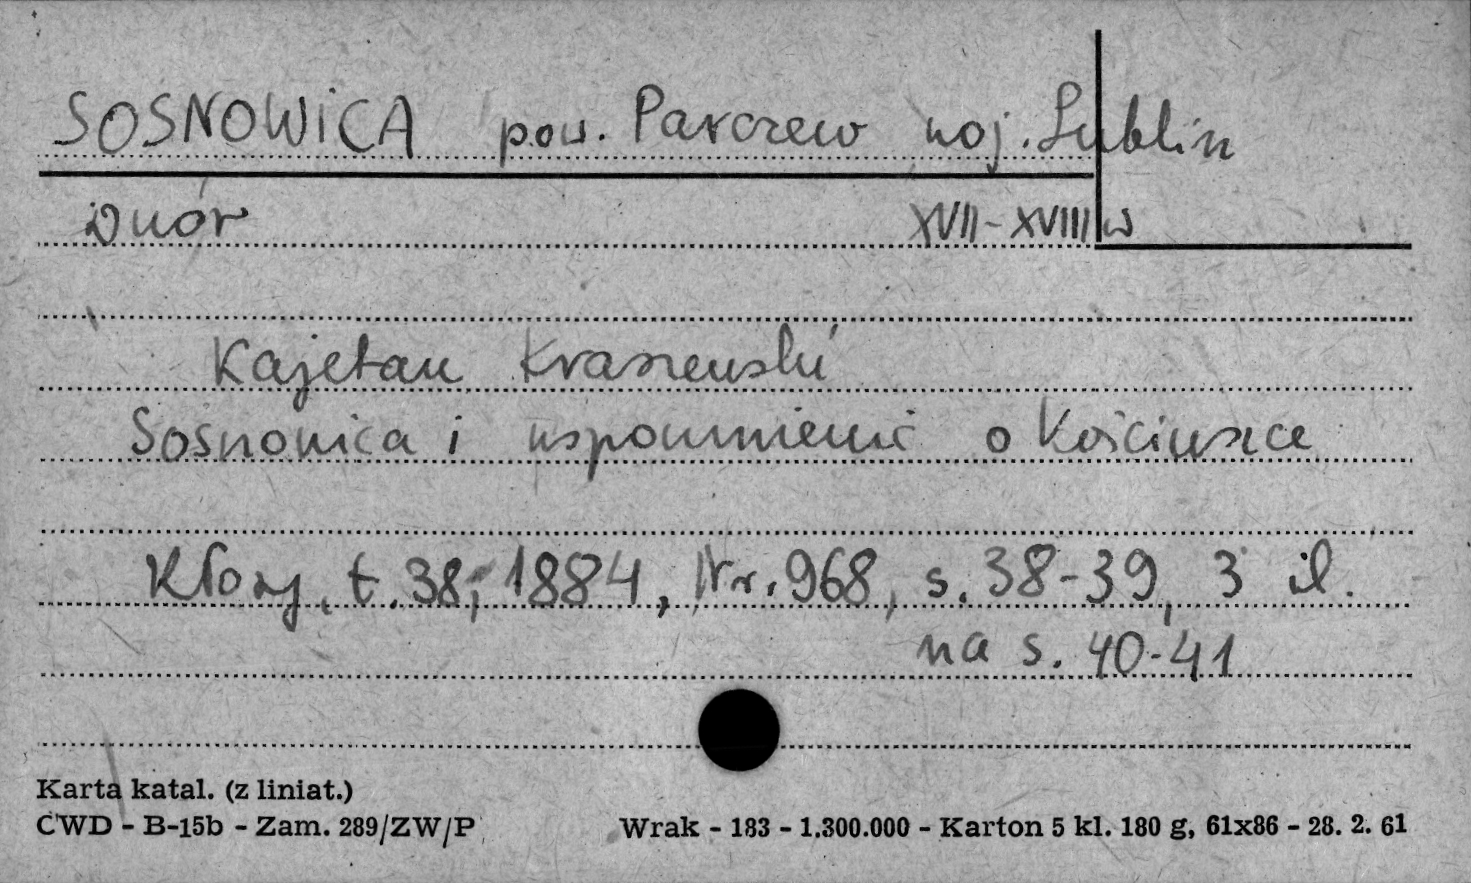 SOSNOWICA pow. Parczew woj. Lublin
Dwór XVII-XVIII w
Kajetan Kraszewski
Sosnowica i wspomnienie o Kościuszce
Kłosy, t. 38, 1884, Nr. 968, s. 38-39, 3 il.
na s. 40-41
Karta katal. (z liniat.)
CWD - B-15b - Zam. 289/ZW/P Wrak - 183 - 1.300.000 - Karton 5 kl. 180 g, 61x86 - 28. 2. 61